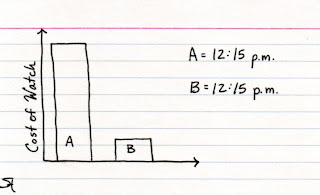 Cost of Watch
A = 12:15 p.m.
B = 12:15 p.m.
A
B